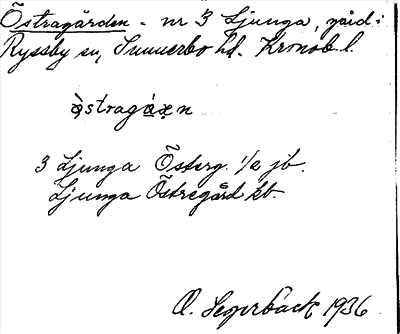 Östragården - nr 3 Ljunga, gård i
Ryssby sn, Sunnerbo hd. Kronob. l.
òstragáʐn
3 Ljunga Österg. 1/2 jb.
Ljunga Östregård kb.
O. Segerbäck 1936